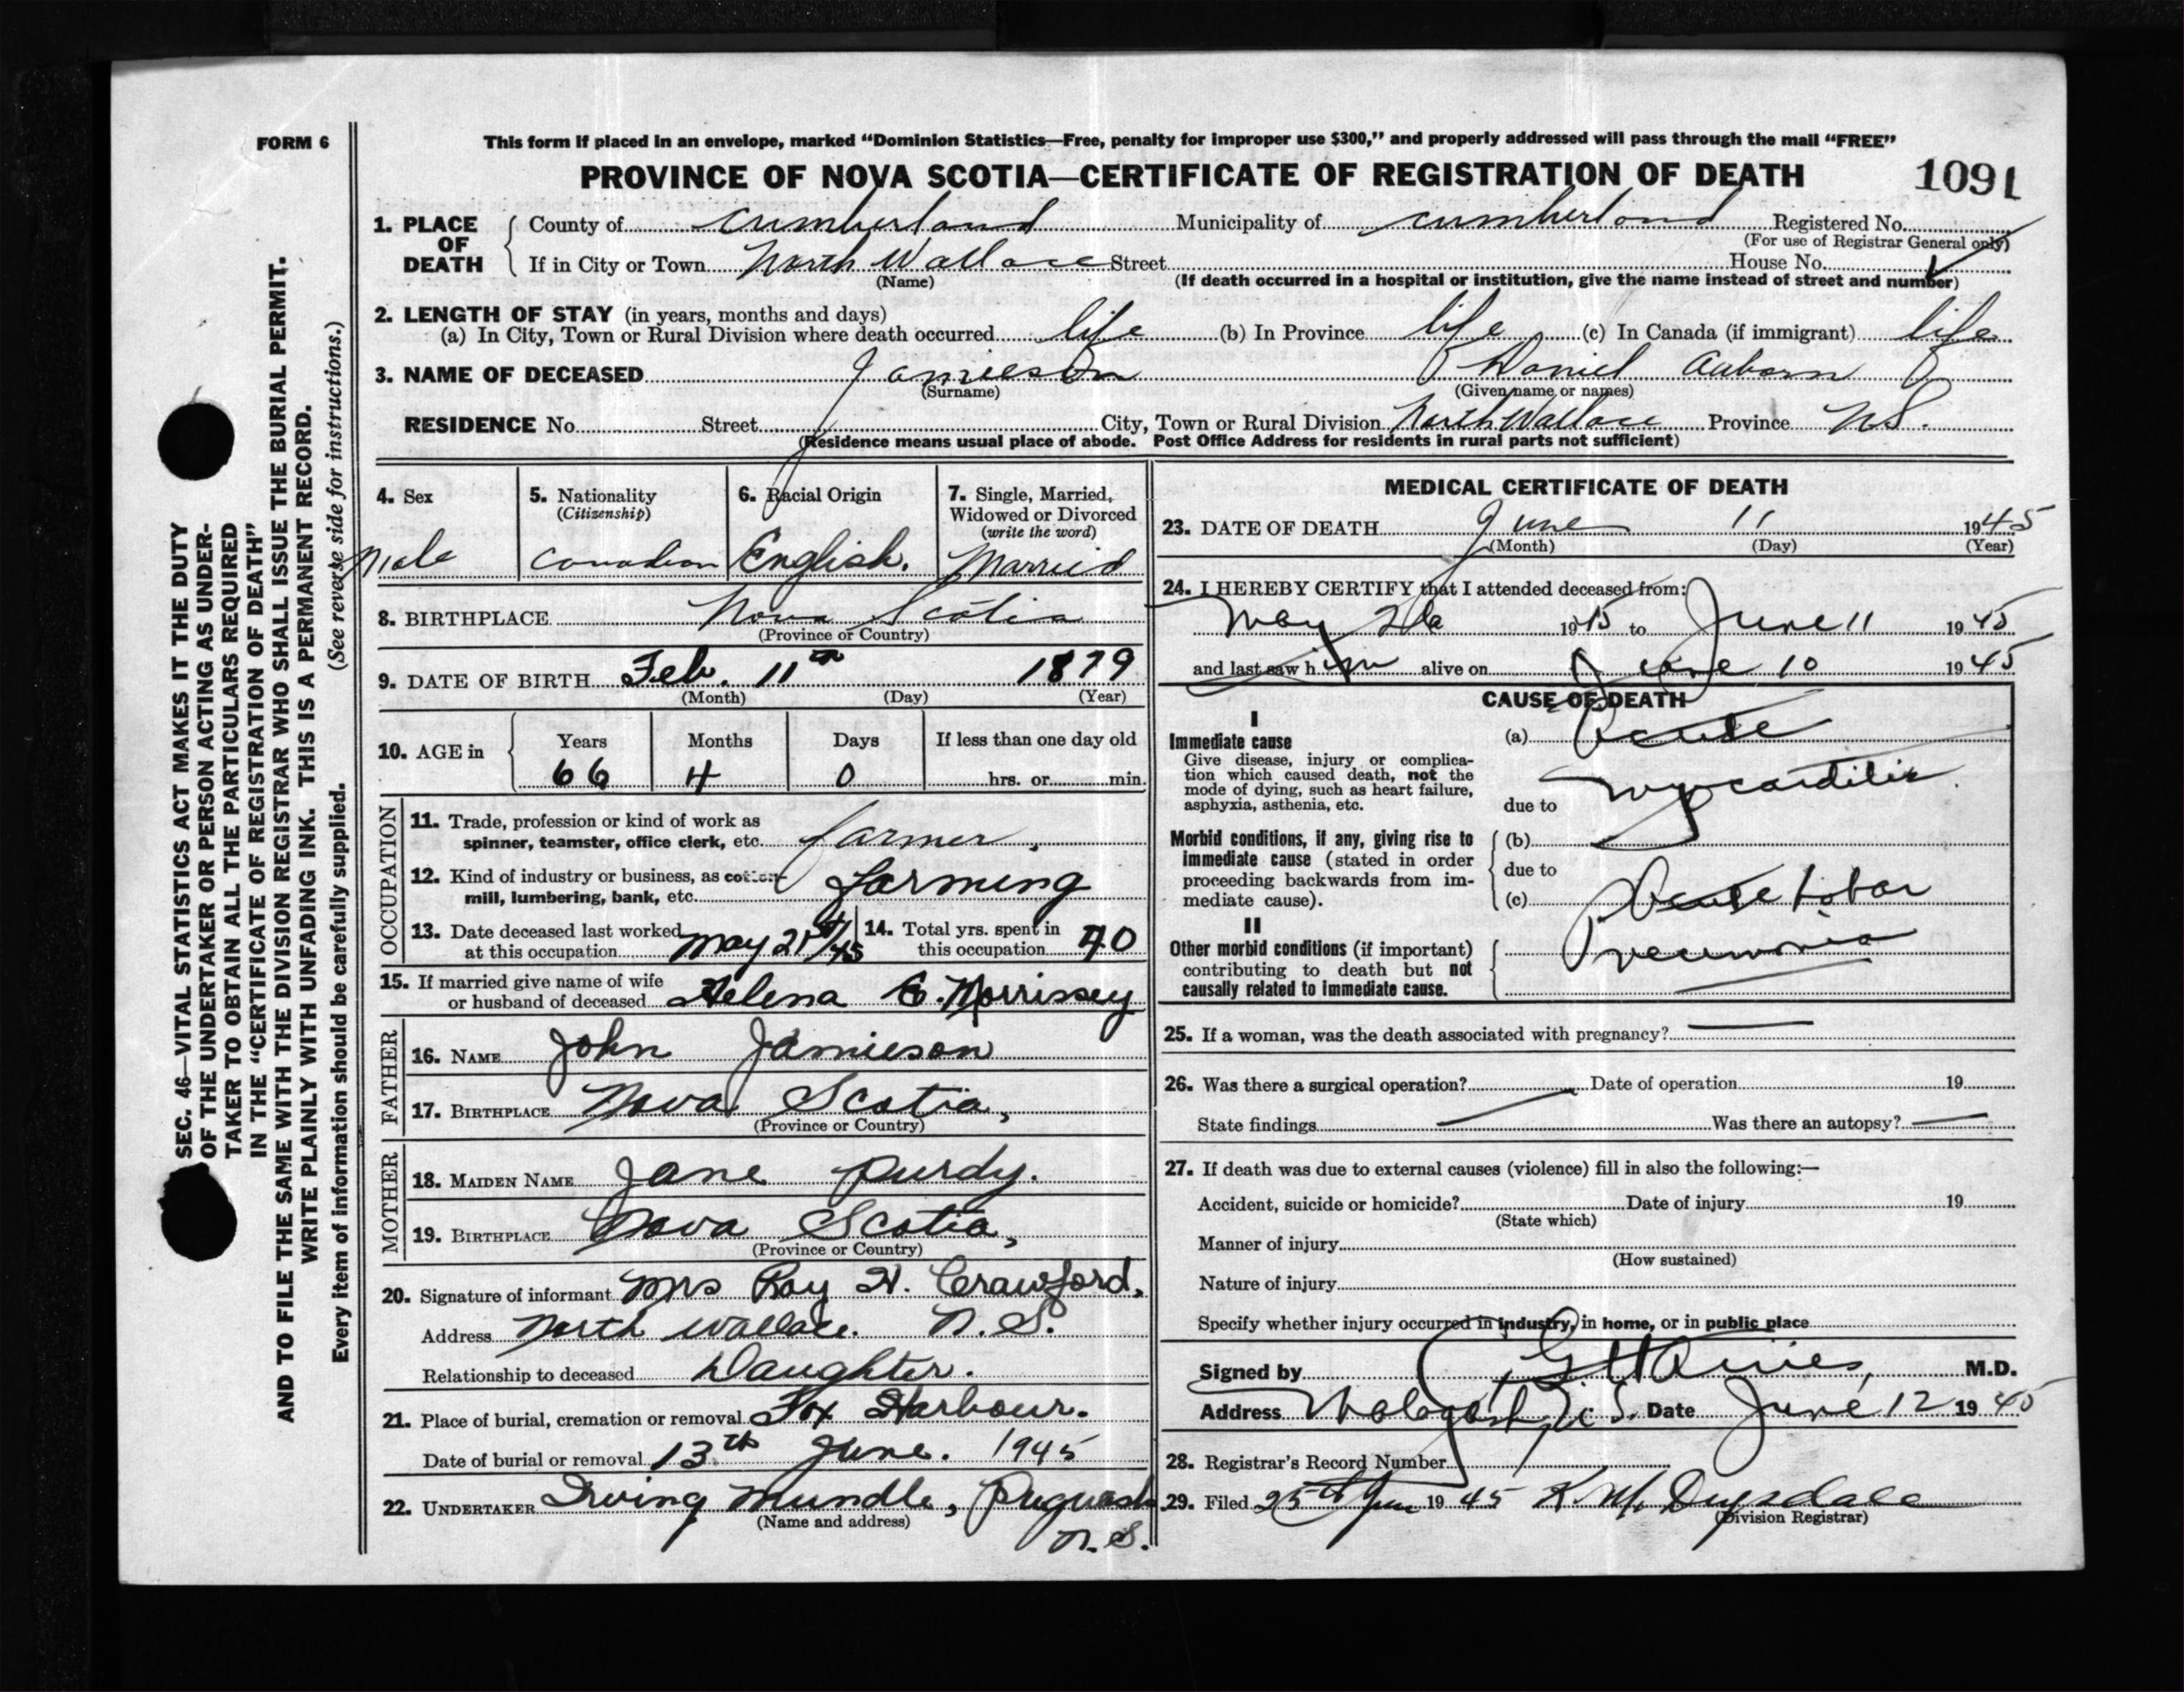 FORM 6
This form if placed in an envelope, marked “Dominion Statistics—Free, penalty for improper use $300,” and properly addressed will pass through the mail “FREE”
PROVINCE OF NOVA SCOTIA—CERTIFICATE OF REGISTRATION OF DEATH 1091
1. PLACE OF DEATH County of Cumberland Municipality of Cumberland Registered No.
(For use of Registrar General only)
If in City or Town North Wallace Street House No.
(Name) (If death occurred in a hospital or institution, give the name instead of street and number)
2. LENGTH OF STAY (in years, months and days)
(a) In City, Town or Rural Division where death occurred life (b) In Province life (c) In Canada (if immigrant) life
3. NAME OF DECEASED Jamieson Daniel Auborn
(Surname) (Given name or names)
RESIDENCE No. Street City, Town or Rural Division North Wallace Province N.S.
(Residence means usual place of abode. Post Office Address for residents in rural parts not sufficient)
4. Sex
Male
5. Nationality
(Citizenship)
Canadian
6. Racial Origin
English.
7. Single, Married,
Widowed or Divorced
(write the word)
Married
8. BIRTHPLACE Nova Scotia
(Province or Country)
9. DATE OF BIRTH Feb. 11th 1879
(Month) (Day) (Year)
10. AGE in Years Months Days If less than one day old
66 4 0 hrs. or min.
OCCUPATION
11. Trade, profession or kind of work as
spinner, teamster, office clerk, etc. farmer.
12. Kind of industry or business, as cotton
mill, lumbering, bank, etc. farming
13. Date deceased last worked
at this occupation May 21st/45
14. Total yrs. spent in
this occupation 40
15. If married give name of wife
or husband of deceased Helena E. Morrissey
FATHER
16. NAME John Jamieson
17. BIRTHPLACE Nova Scotia,
(Province or Country)
MOTHER
18. MAIDEN NAME Jane Purdy.
19. BIRTHPLACE Nova Scotia,
(Province or Country)
20. Signature of informant Mrs Roy H. Crawford,
Address North Wallace. N.S.
Relationship to deceased Daughter.
21. Place of burial, cremation or removal Fox Harbour.
Date of burial or removal 13th June. 1945
22. UNDERTAKER Irving Mundle, Pugwash
(Name and address)
N.S.
MEDICAL CERTIFICATE OF DEATH
23. DATE OF DEATH June 11 1945
(Month) (Day) (Year)
24. I HEREBY CERTIFY that I attended deceased from:
May 1945 to June 11 1945
and last saw him alive on June 10 1945
CAUSE OF DEATH
I
Immediate cause
Give disease, injury or complica-
tion which caused death, not the
mode of dying, such as heart failure,
asphyxia, asthenia, etc.
(a) Acute
Myocarditis
due to
Morbid conditions, if any, giving rise to
immediate cause (stated in order
proceeding backwards from im-
mediate cause).
(b)
due to
(c) Acute Lobar
II
Other morbid conditions (if important)
contributing to death but not
causally related to immediate cause.
Pneumonia
25. If a woman, was the death associated with pregnancy?
26. Was there a surgical operation? Date of operation 19
State findings Was there an autopsy?
27. If death was due to external causes (violence) fill in also the following:—
Accident, suicide or homicide? Date of injury 19
(State which)
Manner of injury
(How sustained)
Nature of injury
Specify whether injury occurred in industry, in home, or in public place
Signed by M.D.
Address Malagash N.S. Date June 12 1945
28. Registrar's Record Number
29. Filed 25th June 1945 K. M. Drysdale
(Division Registrar)
SEC. 46—VITAL STATISTICS ACT MAKES IT THE DUTY
OF THE UNDERTAKER OR PERSON ACTING AS UNDER-
TAKER TO OBTAIN ALL THE PARTICULARS REQUIRED
IN THE “CERTIFICATE OF REGISTRATION OF DEATH”
AND TO FILE THE SAME WITH THE DIVISION REGISTRAR WHO SHALL ISSUE THE BURIAL PERMIT.
WRITE PLAINLY WITH UNFADING INK. THIS IS A PERMANENT RECORD.
Every item of information should be carefully supplied. (See reverse side for instructions.)